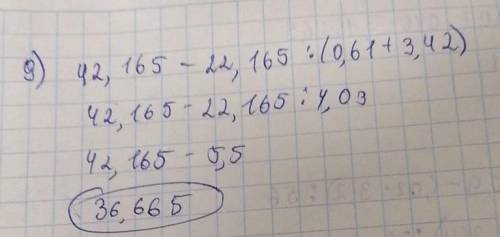 9) 42,165 - 22,165 : (0,61 + 3,42)
42,165 - 22,165 : 4,03
42,165 - 5,5
36,665